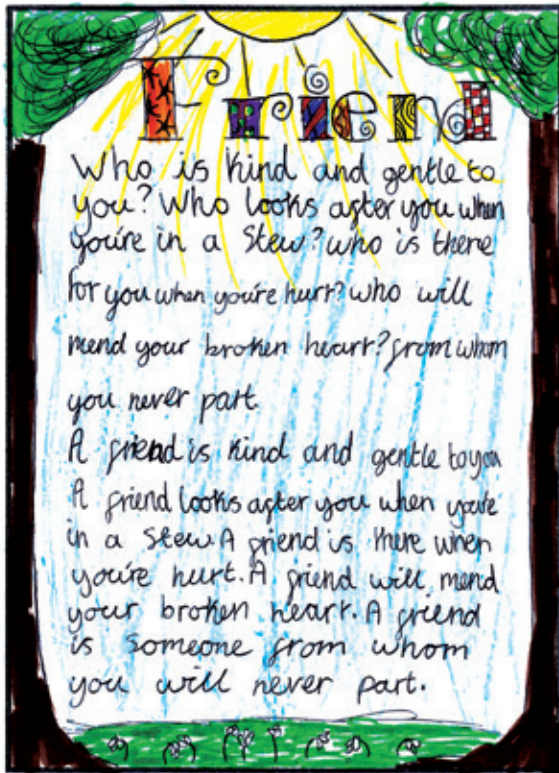 Friend
Who is kind and gentle to
you? Who looks after you when
you're in a stew? who is there
for you when you're hurt? who will
mend your broken heart? from whom
you never part.
A friend is kind and gentle to you
A friend looks after you when you're
in a stew. A friend is there when
you're hurt. A friend will mend
your broken heart. A friend
is someone from whom
you will never part.